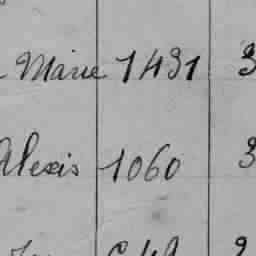 Marie 1431 3
Alexis 1060 3